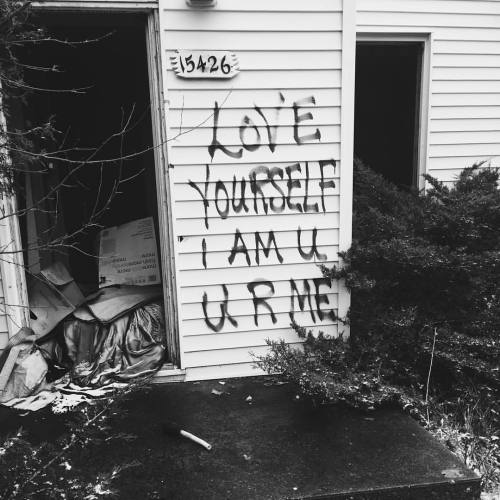 15426
LOVE
YOURSELF
I AM U
U R ME